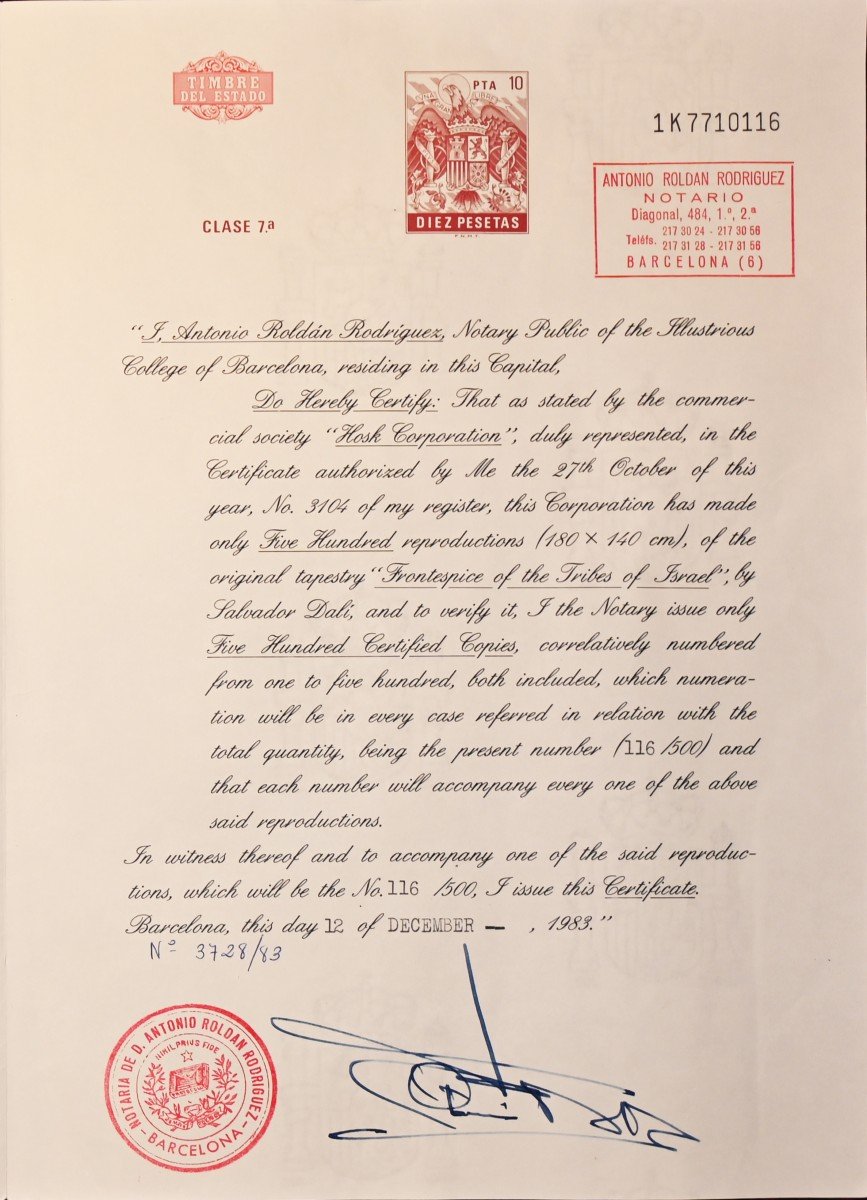 TIMBRE
DEL ESTADO
PTA 10
UNA
GRANDE
LIBRE
DIEZ PESETAS
F.N.M.T.
1K7710116
CLASE 7.ª
ANTONIO ROLDAN RODRIGUEZ
NOTARIO
Diagonal, 484, 1.º, 2.ª
Teléfs. 217 30 24 - 217 30 56
217 31 28 - 217 31 56
BARCELONA (6)
"I, Antonio Roldán Rodríguez, Notary Public of the Illustrious
College of Barcelona, residing in this Capital,
Do Hereby Certify: That as stated by the commer-
cial society "Hosk Corporation", duly represented, in the
Certificate authorized by Me the 27th October of this
year, No. 3104 of my register, this Corporation has made
only Five Hundred reproductions (180 × 140 cm), of the
original tapestry "Frontespice of the Tribes of Israel", by
Salvador Dalí, and to verify it, I the Notary issue only
Five Hundred Certified Copies, correlatively numbered
from one to five hundred, both included, which numera-
tion will be in every case referred in relation with the
total quantity, being the present number (116 /500) and
that each number will accompany every one of the above
said reproductions.
In witness thereof and to accompany one of the said reproduc-
tions, which will be the No. 116 /500, I issue this Certificate.
Barcelona, this day 12 of DECEMBER — , 1983."
Nº 3728/83
NOTARIA DE D. ANTONIO ROLDAN RODRIGUEZ
NIHIL PRIUS FIDE
- BARCELONA -